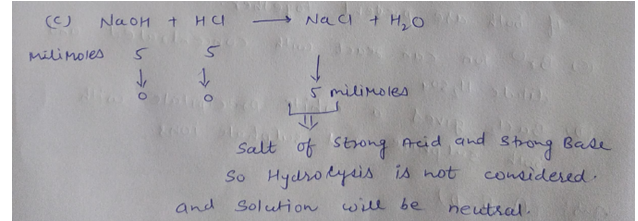 (C) NaOH + HCl ⟶ NaCl + H₂O
Milimoles 5 5
↓ ↓ ↓
0 0 5 milimoles
⇓
Salt of Strong Acid and Strong Base
So Hydrolysis is not considered.
and Solution will be neutral.